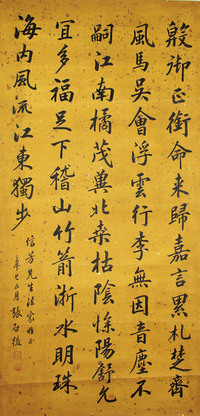 殷御正衔命来歸嘉言累札楚齊
風馬吳會浮雲行李無因音塵不
嗣江南橘茂冀北桑枯陰慘陽舒允
宜多福足下稽山竹箭浙水明珠
海内風流江東獨步
信芳先生法家雅正
辛巳正月 張啟後